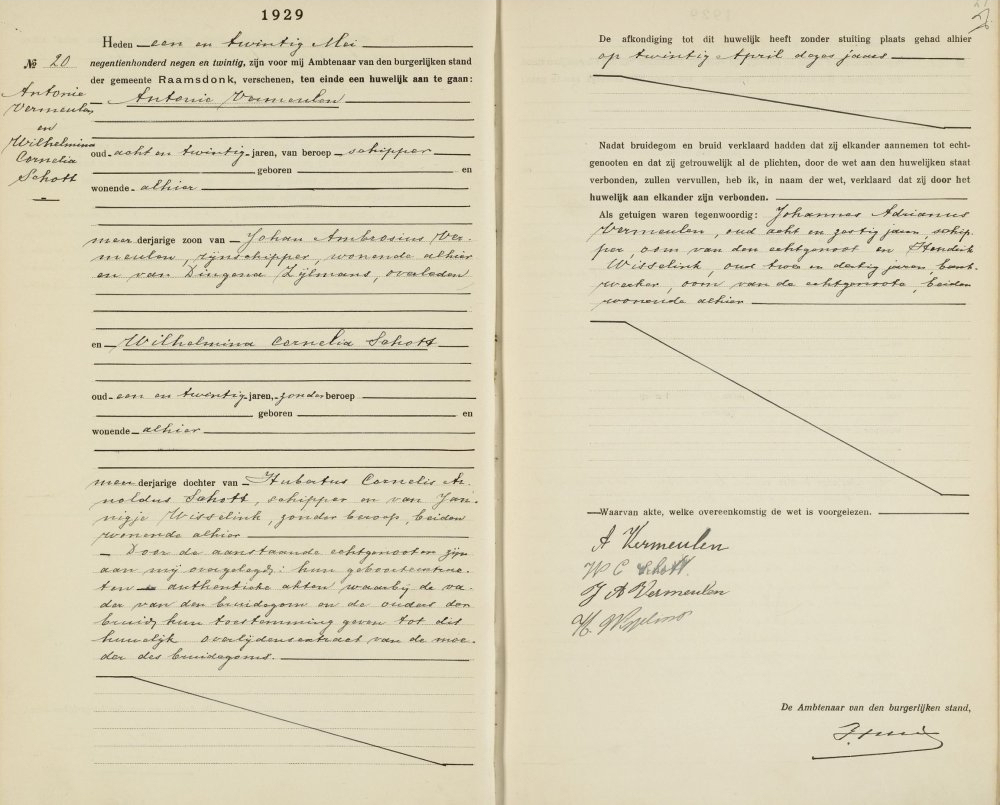 1929
Nº 20
Antonie
Vermeulen
en
Wilhelmina
Cornelia
Schott
Heden een en twintig Mei
negentienhonderd negen en twintig, zijn voor mij Ambtenaar van den burgerlijken stand
der gemeente Raamsdonk, verschenen, ten einde een huwelijk aan te gaan:
Antonie Vermeulen
oud acht en twintig jaren, van beroep schipper
geboren en
wonende alhier
meerderjarige zoon van Johan Ambrosius Ver-
meulen, rijnschipper, wonende alhier
en van Dingena Zijlmans, overleden
en Wilhelmina Cornelia Schott
oud een en twintig jaren, zonder beroep
geboren en
wonende alhier
meerderjarige dochter van Hubertus Cornelis Ar-
noldus Schott, schipper en van Jan-
nigje Wisselink, zonder beroep, beiden
wonende alhier
Door de aanstaande echtgenooten zijn
aan mij overgelegd: hun geboorteextrac-
ten authentieke akten waarbij de va-
der van den bruidegom en de ouders der
bruid hun toestemming geven tot dit
huwelijk overlijdensextract van de moe-
der des bruidegoms.
De afkondiging tot dit huwelijk heeft zonder stuiting plaats gehad alhier
op twintig April dezes jaars
Nadat bruidegom en bruid verklaard hadden dat zij elkander aannemen tot echt-
genooten en dat zij getrouwelijk al de plichten, door de wet aan den huwelijken staat
verbonden, zullen vervullen, heb ik, in naam der wet, verklaard dat zij door het
huwelijk aan elkander zijn verbonden.
Als getuigen waren tegenwoordig: Johannes Adrianus
Vermeulen, oud acht en zestig jaren, schip-
per, oom van den echtgenoot en Hendrik
Wisselink, oud twee en dertig jaren, bank-
werker, oom van de echtgenoote, beiden
wonende alhier
Waarvan akte, welke overeenkomstig de wet is voorgelezen.
A Vermeulen
W C Schott
J A Vermeulen
H. Wisselink
De Ambtenaar van den burgerlijken stand,